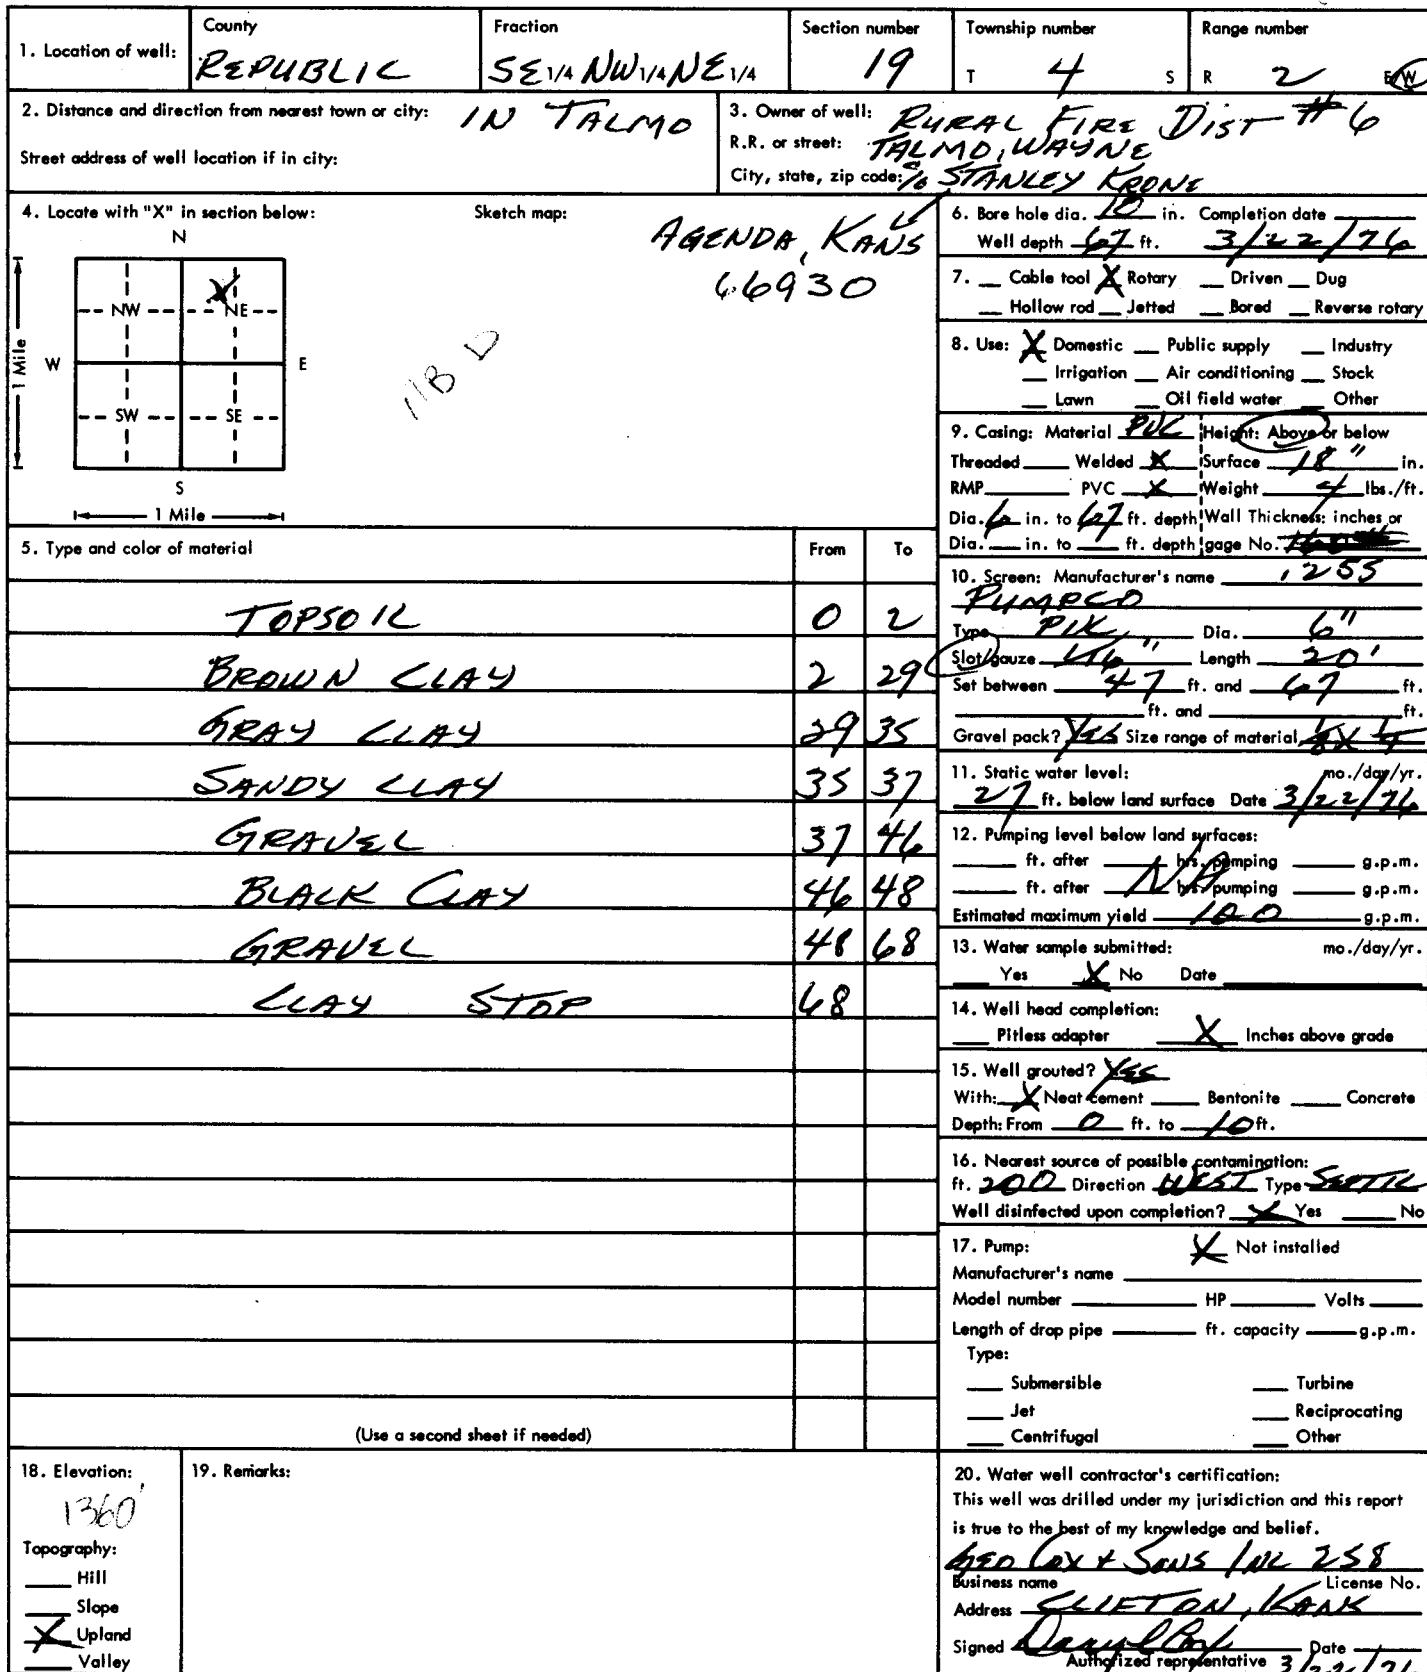 1. Location of well: County REPUBLIC Fraction SE 1/4 NW 1/4 NE 1/4 Section number 19 Township number T 4 S Range number R 2 E W
2. Distance and direction from nearest town or city: IN TALMO
Street address of well location if in city:
3. Owner of well: RURAL FIRE DIST #6
R.R. or street: TALMO, WAYNE
City, state, zip code: % STANLEY KRONE
AGENDA, KANS
66930
4. Locate with "X" in section below: Sketch map:
N
X
NW NE
W E
1 Mile
SW SE
S
1 Mile
5. Type and color of material From To
TOPSOIL 0 2
BROWN CLAY 2 29
GRAY CLAY 29 35
SANDY CLAY 35 37
GRAVEL 37 46
BLACK CLAY 46 48
GRAVEL 48 68
CLAY STOP 68
(Use a second sheet if needed)
6. Bore hole dia. 10 in. Completion date
Well depth 67 ft. 3/22/76
7. Cable tool X Rotary Driven Dug
Hollow rod Jetted Bored Reverse rotary
8. Use: X Domestic Public supply Industry
Irrigation Air conditioning Stock
Lawn Oil field water Other
9. Casing: Material PVC Height: Above or below
Threaded Welded X Surface 18" in.
RMP PVC X Weight 4 lbs./ft.
Dia. 6 in. to 67 ft. depth Wall Thickness: inches or
Dia. in. to ft. depth gage No.
10. Screen: Manufacturer's name .255
PUMPCO
Type PVC Dia. 6"
Slot/gauze 1/16" Length 20'
Set between 47 ft. and 67 ft.
ft. and ft.
Gravel pack? YES Size range of material 1/8 X 1/4
11. Static water level: mo./day/yr.
27 ft. below land surface Date 3/22/76
12. Pumping level below land surfaces:
ft. after hrs. pumping g.p.m.
ft. after N/A hrs. pumping g.p.m.
Estimated maximum yield 100 g.p.m.
13. Water sample submitted: mo./day/yr.
Yes X No Date
14. Well head completion:
Pitless adapter X Inches above grade
15. Well grouted? YES
With: X Neat cement Bentonite Concrete
Depth: From 0 ft. to 10 ft.
16. Nearest source of possible contamination:
ft. 200 Direction WEST Type SEPTIC
Well disinfected upon completion? X Yes No
17. Pump: X Not installed
Manufacturer's name
Model number HP Volts
Length of drop pipe ft. capacity g.p.m.
Type:
Submersible Turbine
Jet Reciprocating
Centrifugal Other
18. Elevation:
1360'
Topography:
Hill
Slope
X Upland
Valley
19. Remarks:
20. Water well contractor's certification:
This well was drilled under my jurisdiction and this report
is true to the best of my knowledge and belief.
GEO COX + SONS INC 258
Business name License No.
Address CLIFTON, KANS
Signed Daryl Cox Date
Authorized representative 3/22/76